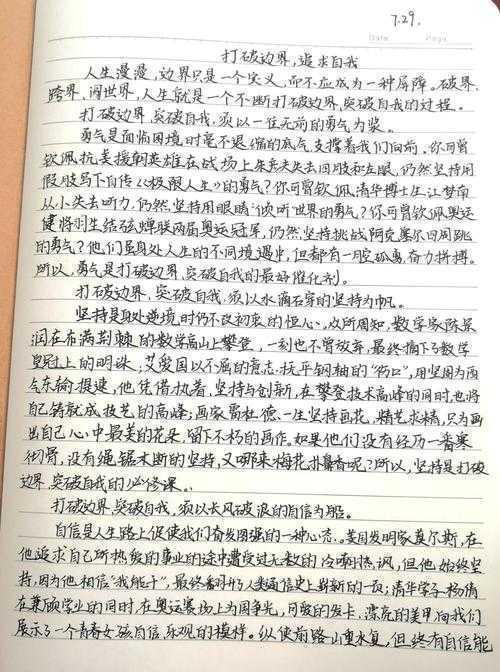 7.29.
Date Page
打破边界,追求自我
人生漫漫,边界只是一个定义,而不应成为一种屏障。破界、
跨界、阔世界,人生就是一个不断打破边界,突破自我的过程。
打破边界,突破自我,须以一往无前的勇气为桨。
勇气是面临困境时毫不退缩的底气,支撑着我们向前。你可曾
钦佩抗美援朝英雄在战场上朱彦夫失去四肢和左眼,仍然坚持用
假肢写下自传《极限人生》的勇气?你可曾钦佩清华博士生江梦南
从小失去听力,仍然坚持用眼睛"倾听"世界的勇气?你可曾钦佩奥运
健将羽生结弦蝉联两届奥运冠军,仍然坚持挑战阿克塞尔四周跳
的勇气?他们虽身处人生的不同境遇中,但都有一腔孤勇,奋力拼搏。
所以,勇气是打破边界,突破自我的最好催化剂。
打破边界,突破自我,须以水滴石穿的坚持为帆。
坚持是身处逆境时仍不改初衷的恒心。众所周知,数学家陈景
润在布满荆棘的数学高山上攀登,一刻也不曾放弃,最终摘下了数学
皇冠上的明珠,艾爱国以不屈的意志,抚平钢铀的"伤口",用坚固为西
气东输搭建,他凭借执着,坚持与创新,在攀登技术高峰的同时,也将
自己铸就成技艺的高峰;画家雷杜德一生坚持画花,精艺求精,只为画
出自己心中最美的花朵,留下不朽的画作。如果他们没有经历一番寒
彻骨,没有绳锯木断的坚持,又哪来梅花扑鼻香呢?所以,坚持是打破
边界,突破自我的必修课。
打破边界,突破自我,须以长风破浪的自信为船。
自信是人生路上促使我们奋发图强的一种心态。美国发明家莫尔斯,在
他追求自己所热爱的事业的途中遭受过无数的冷嘲热讽,但他始终坚
持,因为他相信"我能行",最终翻开了人类通信史上崭新的一页;清华学子杨倩
在兼顾学业的同时,在奥运赛场上为国争光,可爱的发卡,漂亮的美甲向我们
展示了一个青春女孩自信、乐观的模样。纵使前路山重水复,但终有自信能